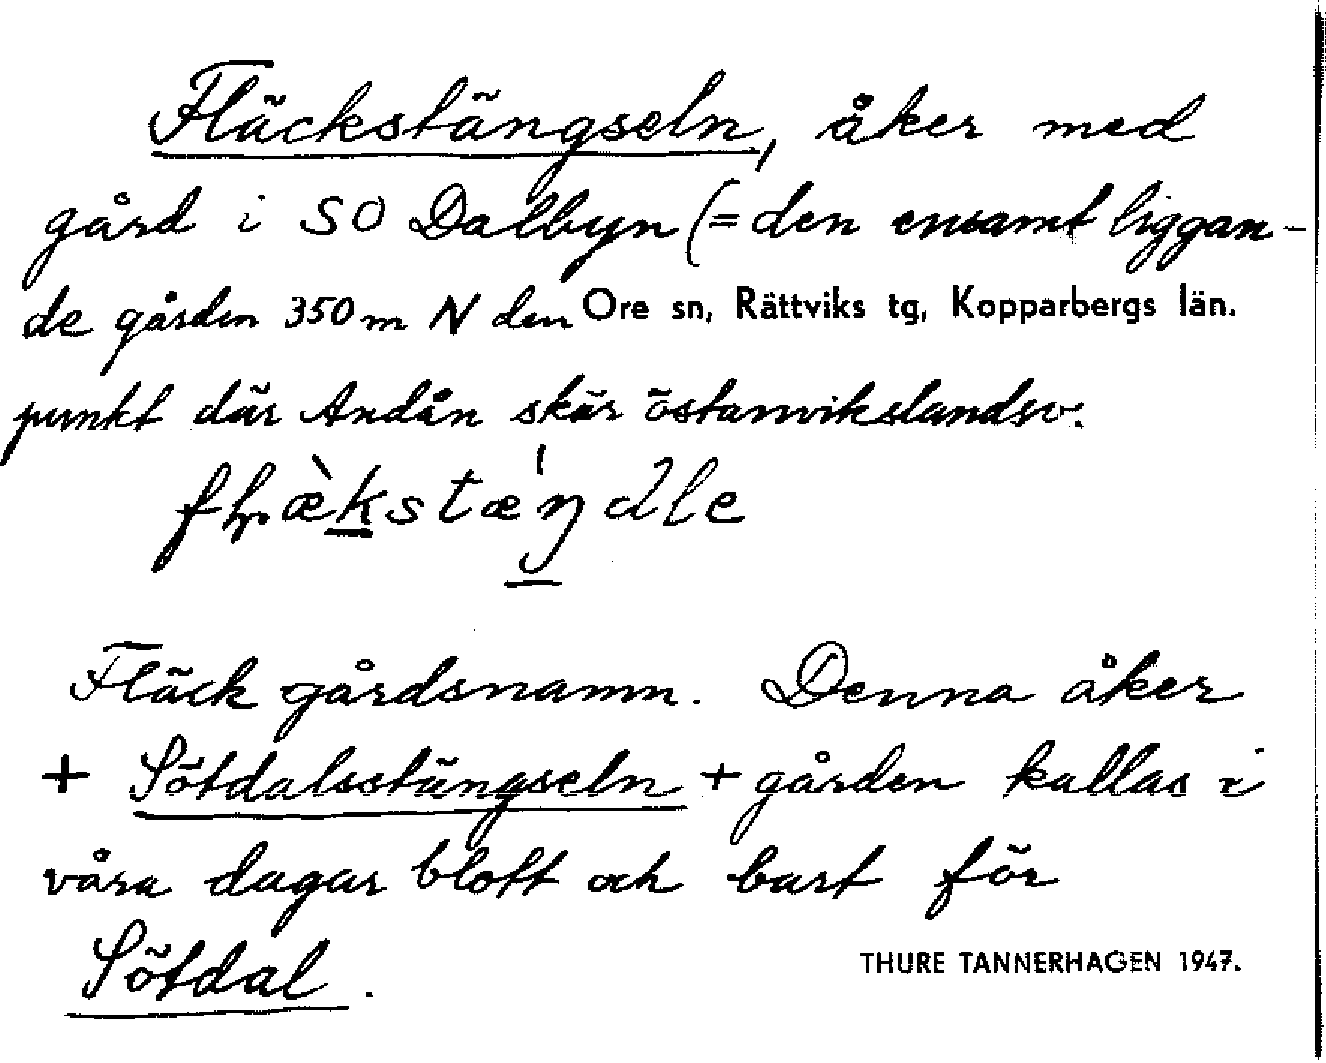 Fläckstängseln, åker med
gård i SO Dalbyn (= den ensamt liggan-
de gården 350 m N den Ore sn, Rättviks tg, Kopparbergs län.
punkt där Andån skär östanvikslandsv.
Fläck gårdsnamn. Denna åker
+ Sötdalsstängseln + gården kallas i
våra dagar blott och bart för
Sötdal.
THURE TANNERHAGEN 1947.